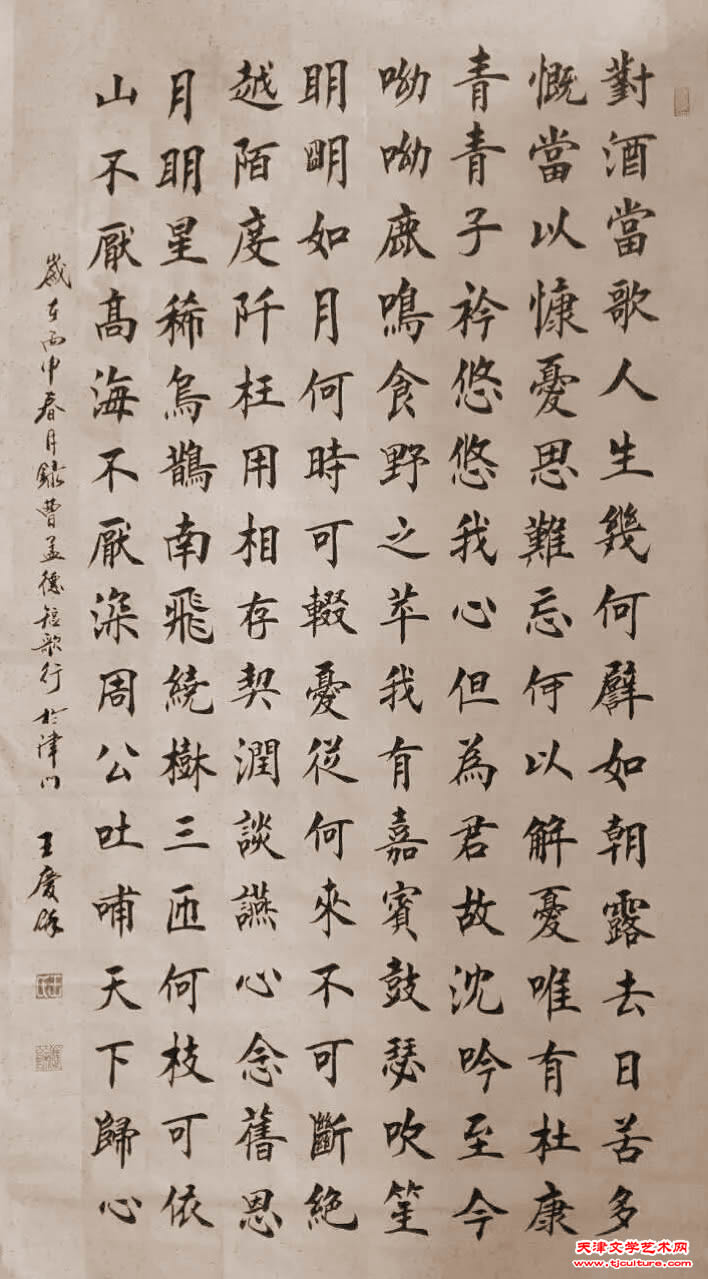 對酒當歌人生幾何譬如朝露去日苦多
慨當以慷憂思難忘何以解憂唯有杜康
青青子衿悠悠我心但為君故沈吟至今
呦呦鹿鳴食野之苹我有嘉賓鼓瑟吹笙
明明如月何時可輟憂從何來不可斷絕
越陌度阡枉用相存契潤談讌心念舊恩
月明星稀烏鵲南飛繞樹三匝何枝可依
山不厭高海不厭深周公吐哺天下歸心
歲在丙申春月錄曹孟德短歌行於津門 王慶
天津文学艺术网
www.tjculture.com